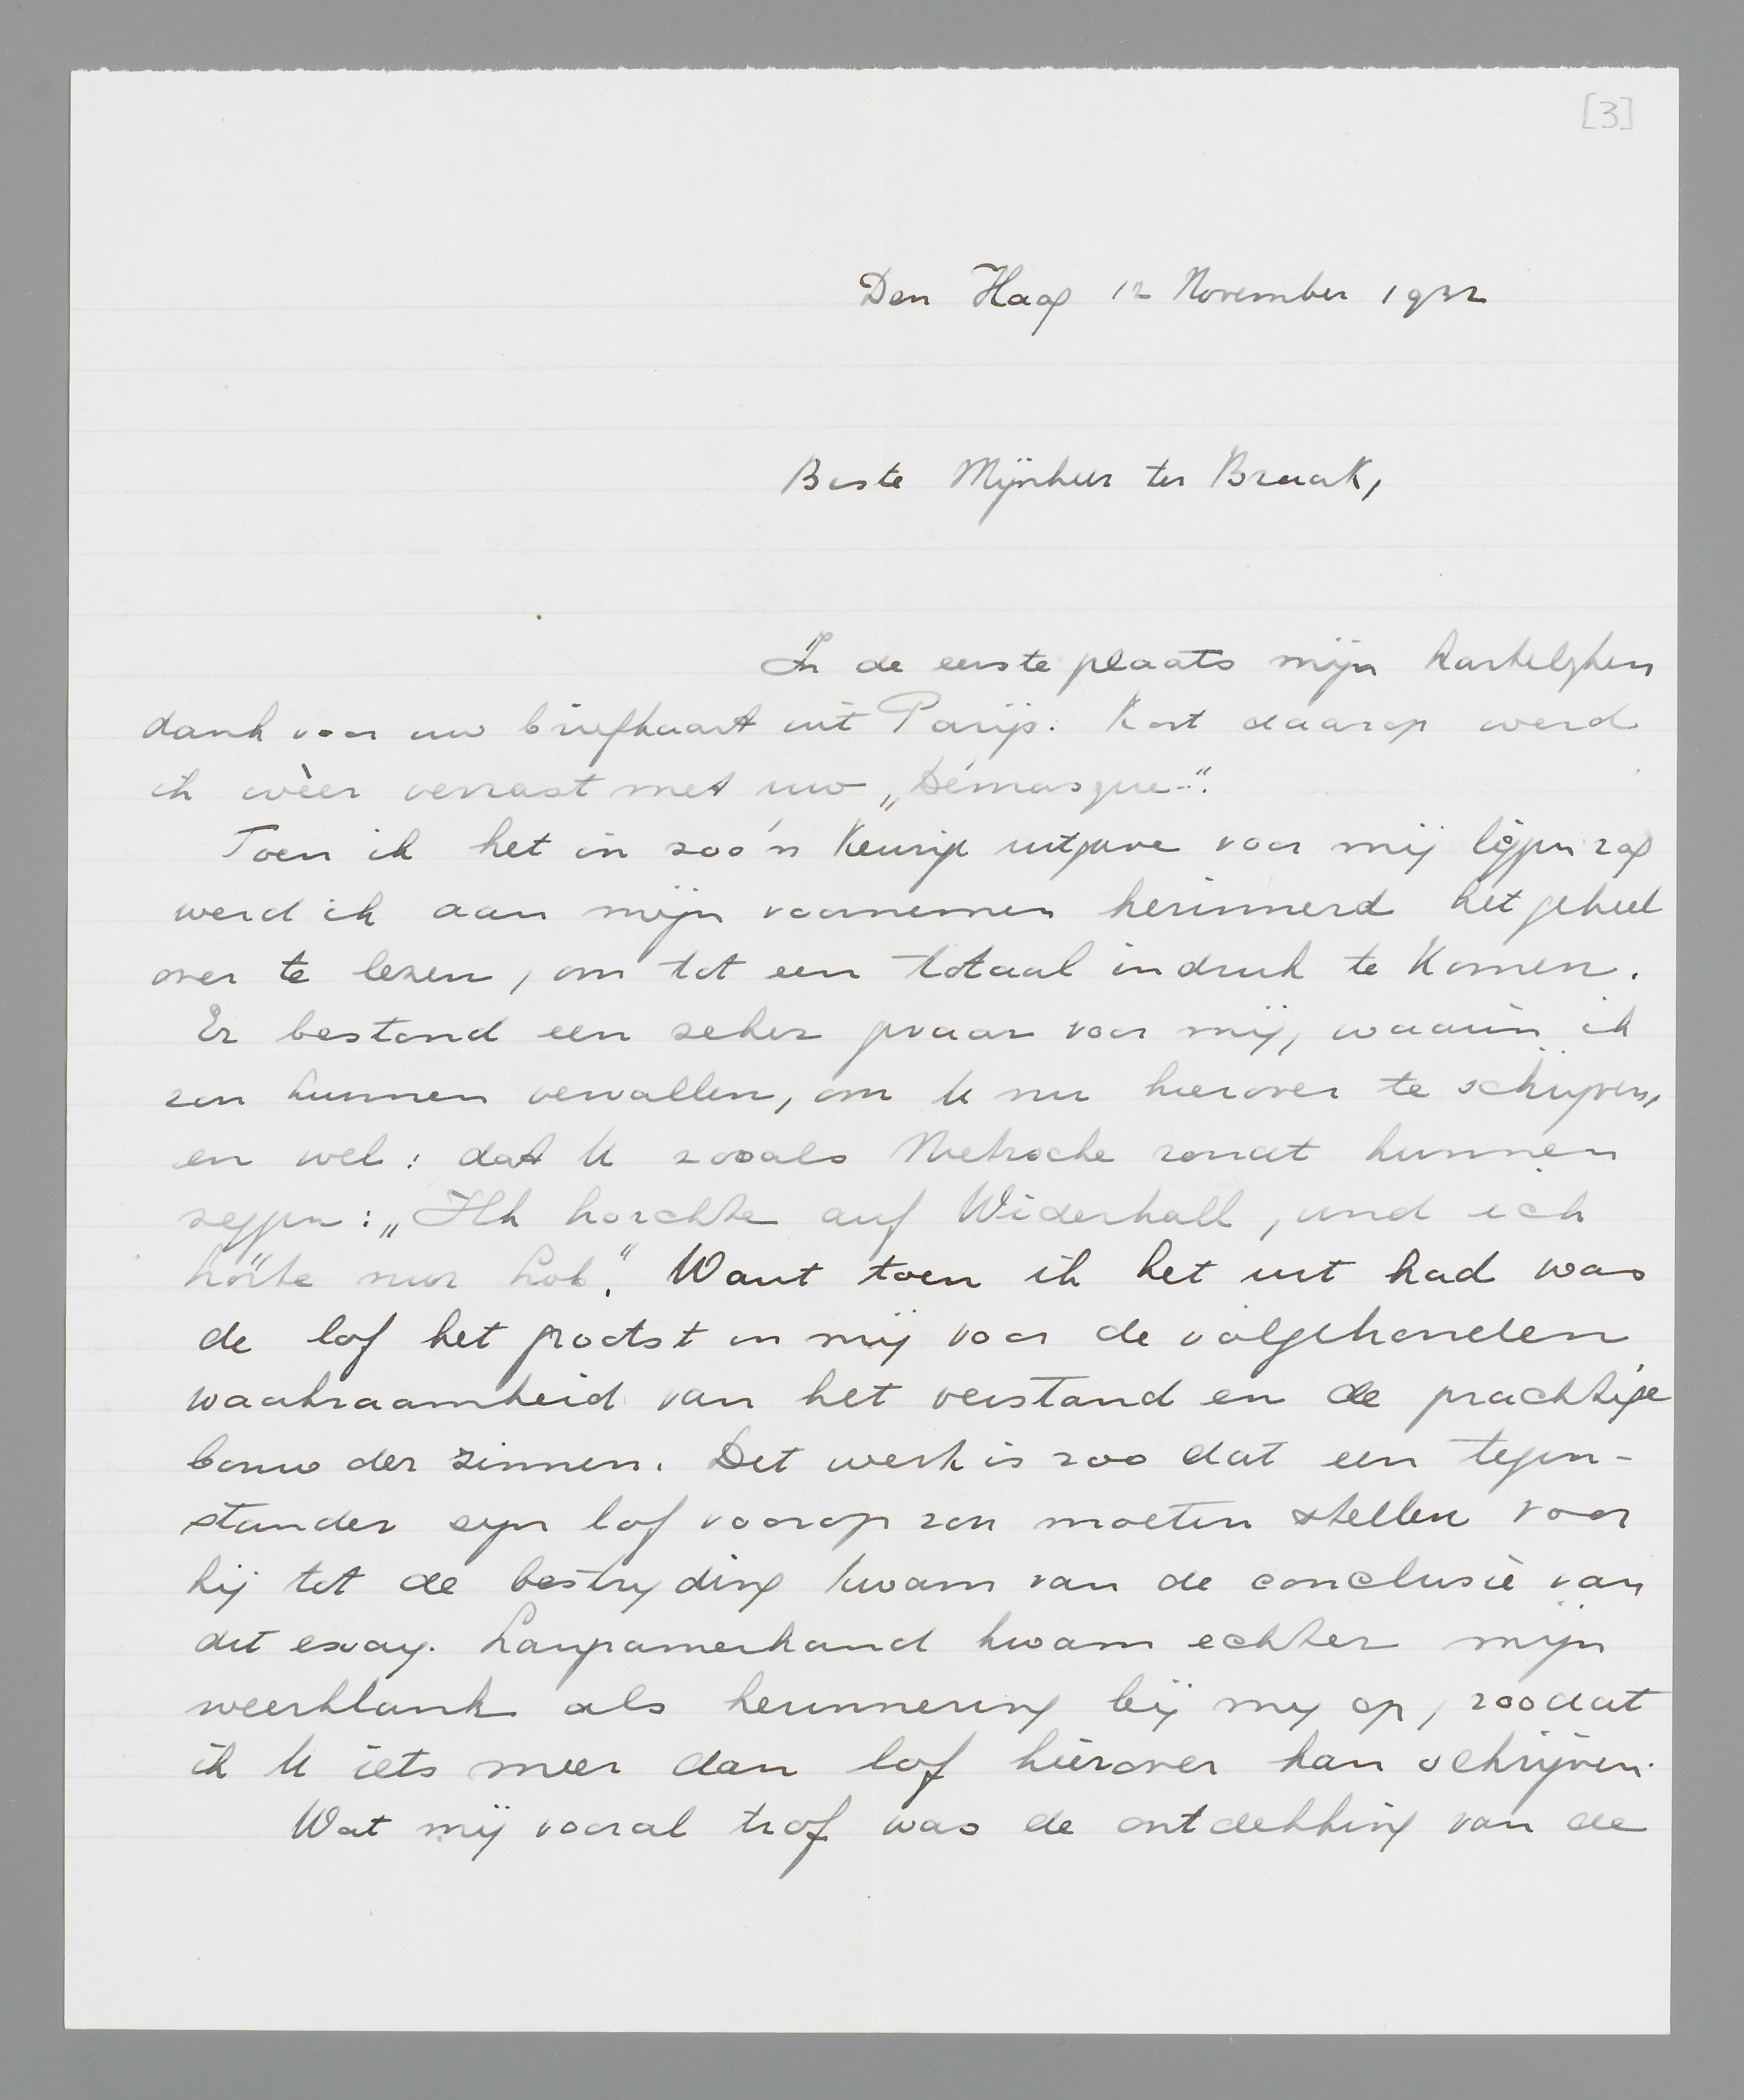 [3]
Den Haag 12 November 1932
Beste Mijnheer ter Braak,
In de eerste plaats mijn hartelijken
dank voor uw briefkaart uit Parijs. Kort daarop werd
ik wèer verrast met uw „Démasqué-".
Toen ik het in zoo'n keurige uitgave voor mij liggen zag
werd ik aan mijn voornemen herinnerd het geheel
over te lezen, om tot een totaal indruk te komen.
Er bestond een zeker gevaar voor mij, waarin ik
zou kunnen vervallen, om U nu hierover te schrijven,
en wel: dat U zooals Nietzsche zoudt kunnen
zeggen: „Ich horchte auf Widerhall, und ich
hörte nur Lob." Want toen ik het uit had was
de lof het grootst in mij voor de volgehouden
waakzaamheid van het verstand en de prachtige
bouw der zinnen. Det werk is zoo dat een tegen-
stander zijn lof voorop zou moeten stellen voor
hij tot de bestrijding kwam van de conclusie van
dit essay. Langzamerhand kwam echter mijn
weerklank als herinnering bij mij op, zoodat
ik U iets meer dan lof hierover kan schrijven.
Wat mij vooral trof was de ontdekking van de